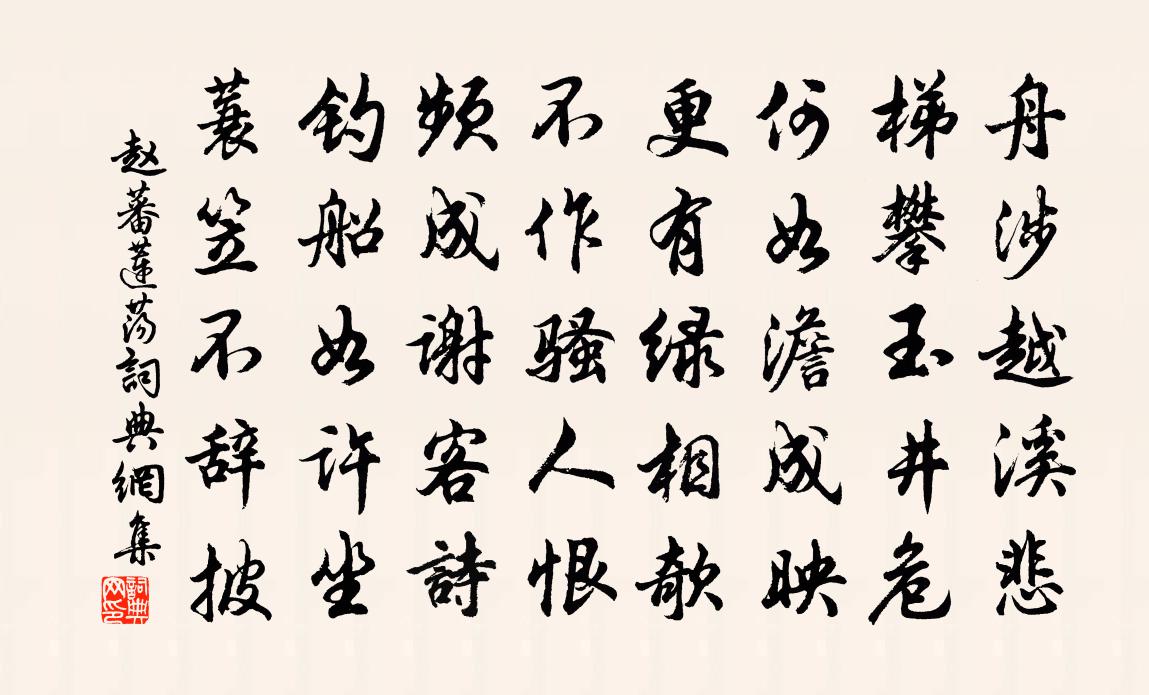 舟涉越溪悲
梯攀玉井危
何如澹成映
更有绿相欹
不作骚人恨
频成谢客詩
钓船如许坐
蓑笠不辞披
赵蕃莲荡詞典網集
詞典网印